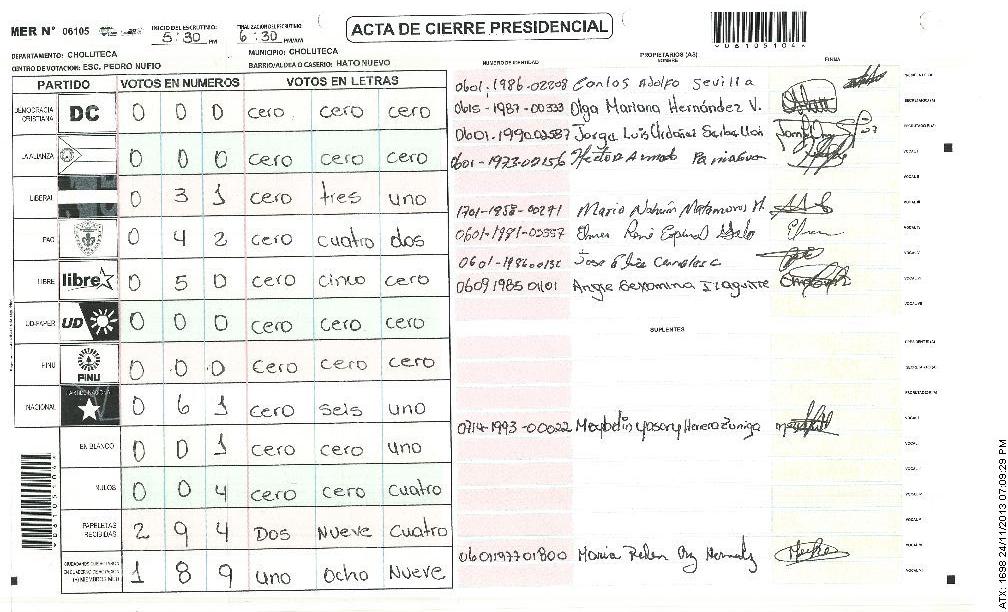 MER Nº 06105
INICIO DEL ESCRUTINIO: 5:30 PM
FINALIZACION DEL ESCRUTINIO: 6:30 PM/AM
ACTA DE CIERRE PRESIDENCIAL
DEPARTAMENTO: CHOLUTECA
MUNICIPIO: CHOLUTECA
CENTRO DE VOTACION: ESC. PEDRO NUFIO
BARRIO/ALDEA O CASERIO: HATO NUEVO
PARTIDO VOTOS EN NUMEROS VOTOS EN LETRAS
DEMOCRACIA CRISTIANA DC 0 0 0 cero cero cero
LA ALIANZA 0 0 0 cero cero cero
LIBERAL 0 3 1 cero tres uno
PAC 0 4 2 cero cuatro dos
LIBRE libre 0 5 0 cero cinco cero
UD-FAPER UD 0 0 0 cero cero cero
PINU PINU 0 0 0 cero cero cero
NACIONAL 0 6 1 cero seis uno
EN BLANCO 0 0 1 cero cero uno
NULOS 0 0 4 cero cero cuatro
PAPELETAS RECIBIDAS 2 9 4 Dos Nueve cuatro
1 8 9 uno ocho Nueve
NUMERO DE IDENTIDAD
PROPIETARIOS (AS)
NOMBRE
FIRMA
0601-1986-02208 Carlos Adolfo Sevilla
0615-1987-00333 Olga Mariana Hernández V.
0601-1990-02587 Jorge Luis Ordoñez
0601-1973-02156 Hector
1701-1958-00271 Mario Nahún Matamoros H.
0601-1981-03557 Elmer René Espinal
0601-1986 Jose
0609 1985 01101 Angie Geromina Izaguirre
SUPLENTES
0714-1993-00022 Maybelin yosary Herrera Zuniga
0601197701800 Maria Belen
ATX: 1698 24/11/2013 07:09:29 PM